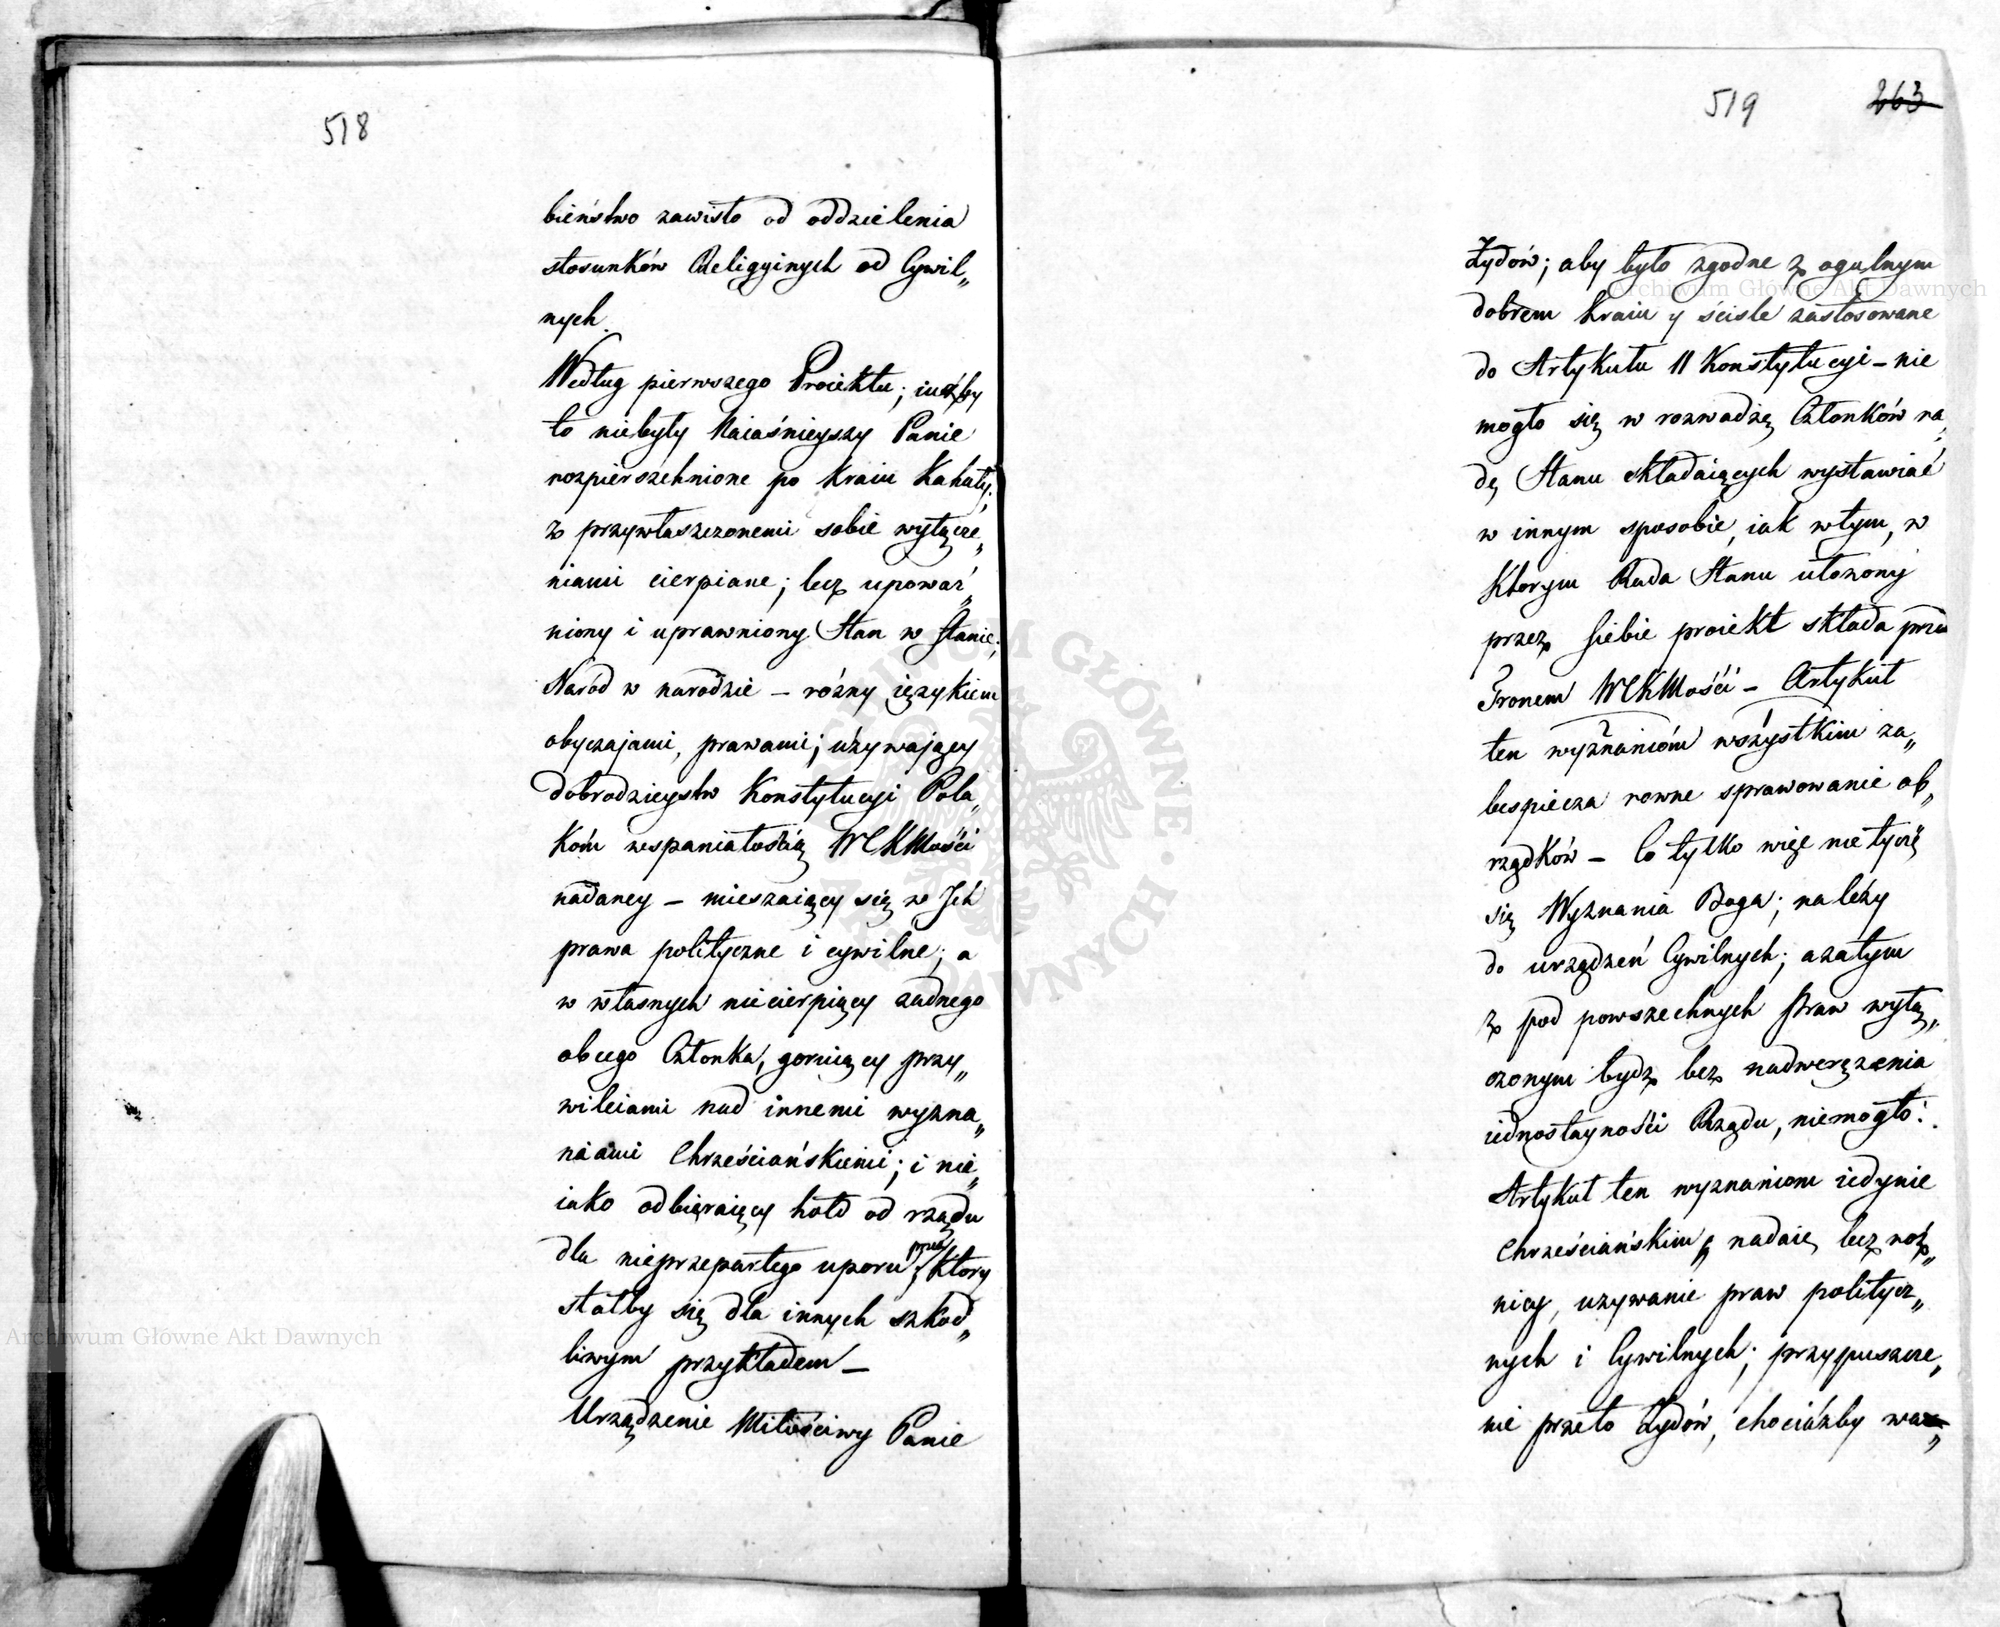 518
bieństwo zawisło od oddzielenia
stosunków Religyinych od Cywil„
nych.
Według pierwszego Proiektu; iużby
to niebyły Naiaśnieyszy Panie
rozpierszchnione po kraiu Kahały;
z przywłaszczonemi sobie wyłącze„
niami cierpiane; lecz upoważ„
niony i uprawniony Stan w Stanie;
Naród w narodzie – rózny ięzykiem
obyczajami, prawami; używający
dobrodzieystw Konstytucyi Pola„
kóm wspaniałością WCKMości
nadaney – mieszaiący się w Ich
prawa polityczne i cywilne; a
w własnych niecierpiący zadnego
obcego Członka, goruiący przy„
wileiami nad innemi wyzna„
niami Chrześciańskiemi; i nie„
iako odbieraiący hołd od rządu
dla nieprzepartego uporu; przez który
stałby się dla innych szkod„
liwym przykładem –
Urządzenie Miłościwy Panie
519
263
Żydów; aby było zgodne z ogulnym
dobrem kraiu y ściśle zastosowane
do Artykułu 11 Konstytucyi – nie
mogło się w rozwadzę Członków ra„
dę Stanu składaiących wystawiać
w innym sposobie, iak wtym, w
ktorym Rada Stanu ułożony
przez siebie proiekt składa przed
Tronem WCKMości – Artykuł
ten wyznanióm wszystkim za„
bespiecza rowne sprawowanie ob„
rządków – Co tylko więc nie tyczę
się Wyznania Boga; należy
do urządzeń Cywilnych; a zatym
z pod powszechnych praw wyłą„
czonym bydz bez nadwerężenia
iednostayności Rządu, niemogło.
Artykuł ten wyznaniom iedynie
Chrześciańskim nadaie, bez roż„
nicy, używanie praw politycz„
nych i Cywilnych; przypuszcze„
nie przeto Żydów, chociażby wa„
Archiwum Główne Akt Dawnych
Archiwum Główne Akt Dawnych
ARCHIWUM GŁÓWNE AKT DAWNYCH